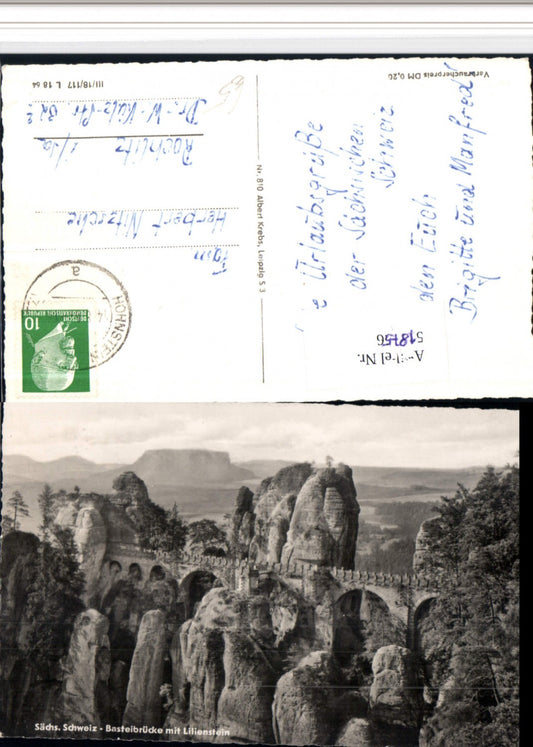 Verbraucherpreis DM 0,20
III/18/117 L 18 64
Urlaubsgrüße
der Sächsichen
Schweiz
den Euch
Brigitte und Manfred
Nr. 810 Albert Krebs, Leipzig S 3
Fam
Herbert Nitzsche
Rochlitz
i/Sa
Dr.-W-Külz-Str
HOHNSTE
a
10
DEUTSCHE
DEMOKRATISCHE REPUBLIK
Nr.
Sächs. Schweiz - Basteibrücke mit Lilienstein